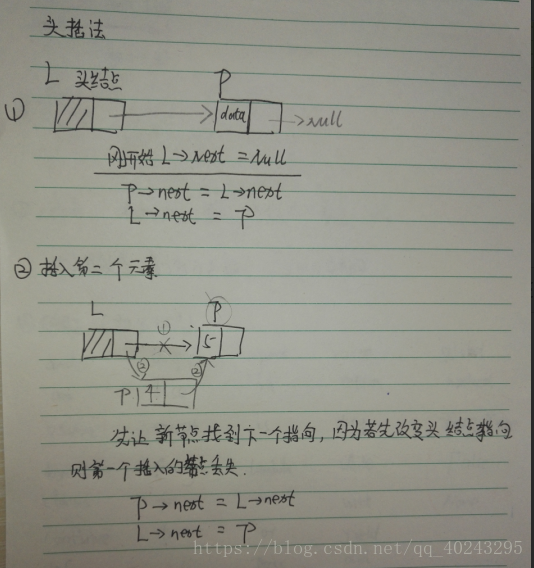 头插法
L 头结点 P
① data null
刚开始 L→next = null
P→next = L→next
L→next = P
② 插入第二个元素
L P
① 5
② ②
P 4
先让新节点找到下一个指向,因为若先改变头结点指向
则第一个插入的结点丢失.
P→next = L→next
L→next = P
https://blog.csdn.net/qq_40243295